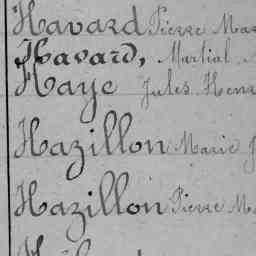 Havard Pierre Mar
Havard, Martial
Haye Jules Henr
Hazillon Marie J
Hazillon Pierre Ma